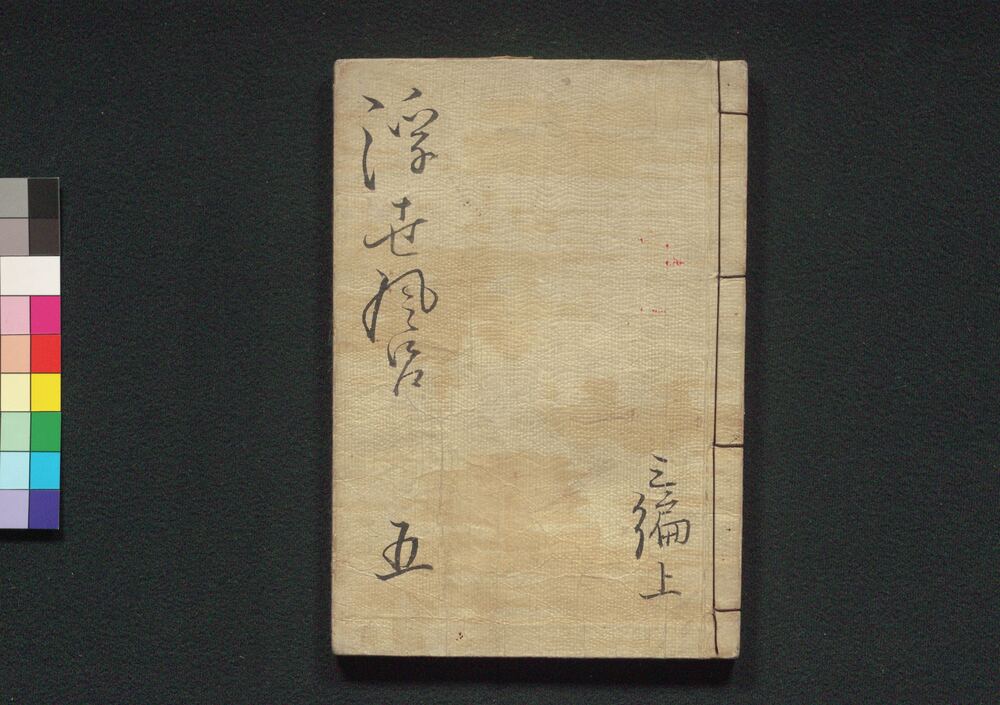 三編上
浮世風呂 五